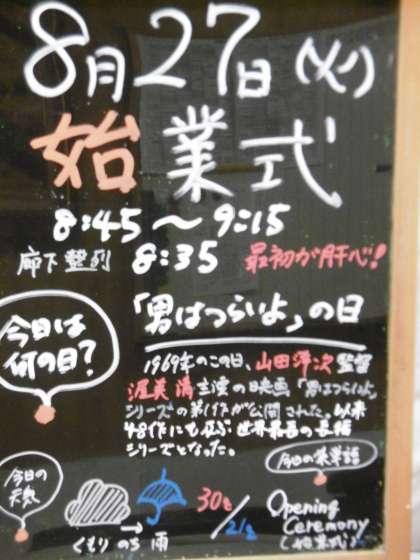 8月27日(火)
始業式
8:45〜9:15
廊下整列 8:35 最初が肝心!
今日は
何の日?
「男はつらいよ」の日
1969年のこの日、山田洋次監督
渥美清主演の映画「男はつらいよ」
シリーズの第1作が公開された。以来
48作にも及ぶ世界最長の長編
シリーズとなった。
今日の英単語
今日の
天気
くもり のち 雨
30℃/21℃
Opening
Ceremony
(始業式)